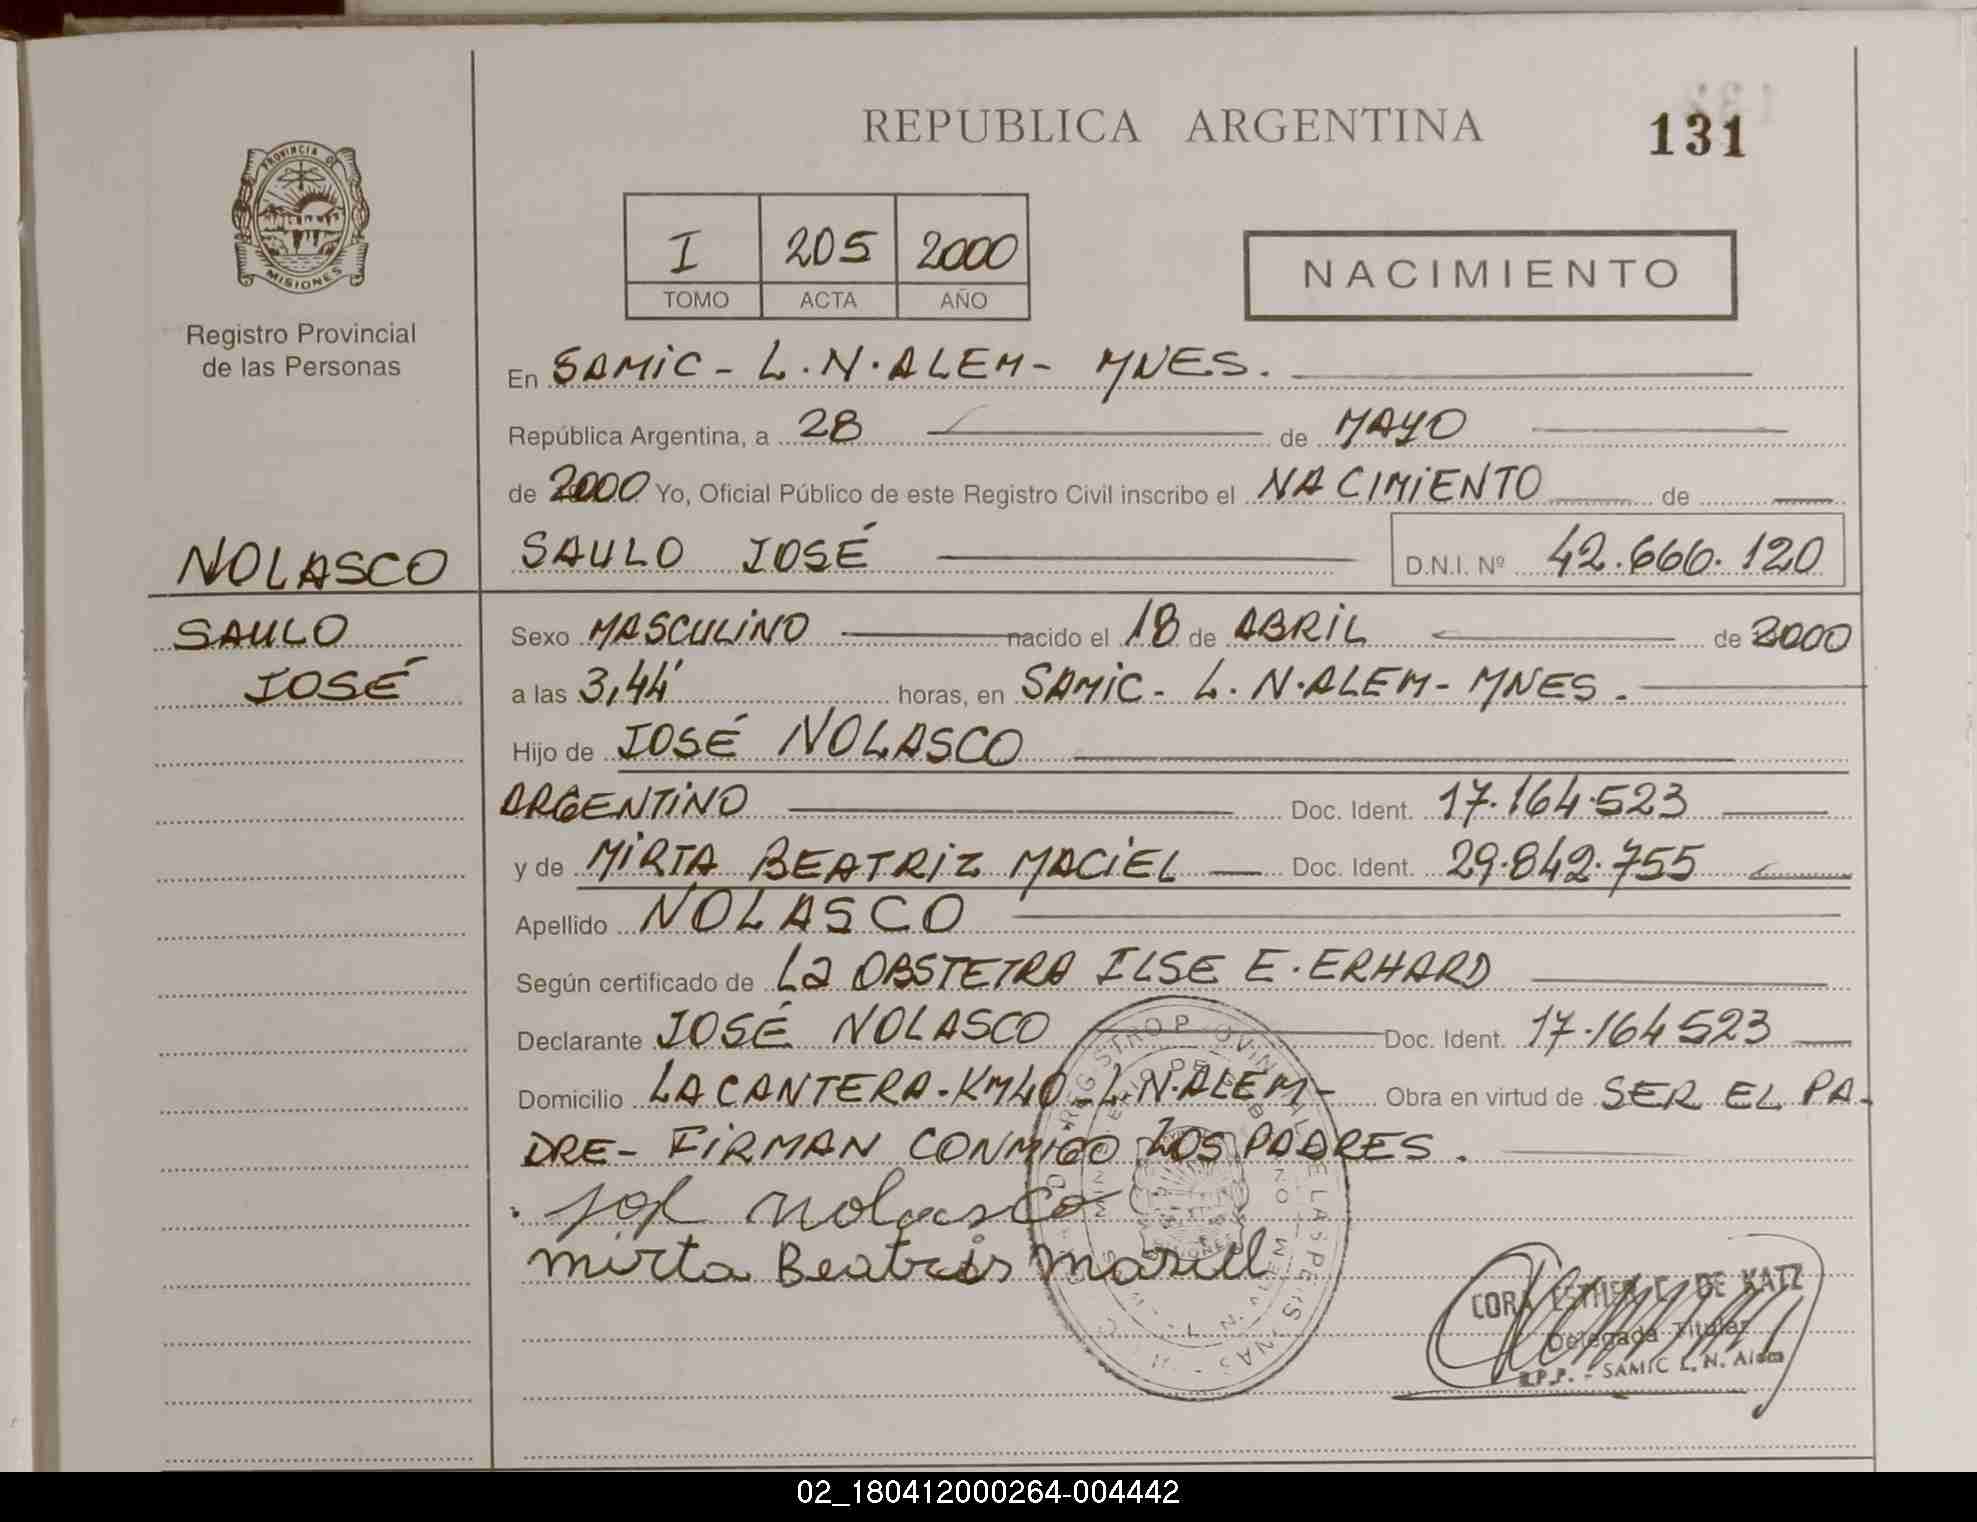 REPUBLICA ARGENTINA
131
PROVINCIA DE
MISIONES
Registro Provincial
de las Personas
I 205 2000
TOMO ACTA AÑO
NACIMIENTO
En SAMIC - L.N. ALEM - MNES.
República Argentina, a 28 de MAYO
de 2000 Yo, Oficial Público de este Registro Civil inscribo el NACIMIENTO de
NOLASCO
SAULO JOSÉ D.N.I. Nº 42.666.120
SAULO
JOSÉ
Sexo MASCULINO nacido el 18 de ABRIL de 2000
a las 3,44' horas, en SAMIC - L. N. ALEM - MNES.
Hijo de JOSÉ NOLASCO
ARGENTINO Doc. Ident. 17.164.523
y de MIRTA BEATRIZ MACIEL Doc. Ident. 29.842.755
Apellido NOLASCO
Según certificado de La OBSTETRA ILSE E. ERHARD
Declarante JOSÉ NOLASCO Doc. Ident. 17.164 523
Domicilio LA CANTERA - KM40 - L.N. ALEM - Obra en virtud de SER EL PA-
DRE - FIRMAN CONMIGO LOS PADRES.
nolasco
mirta Beatris
CORA ESTHER C. DE KATZ
Delegada Titular
R.P.P. - SAMIC L. N. Alem
02_180412000264-004442